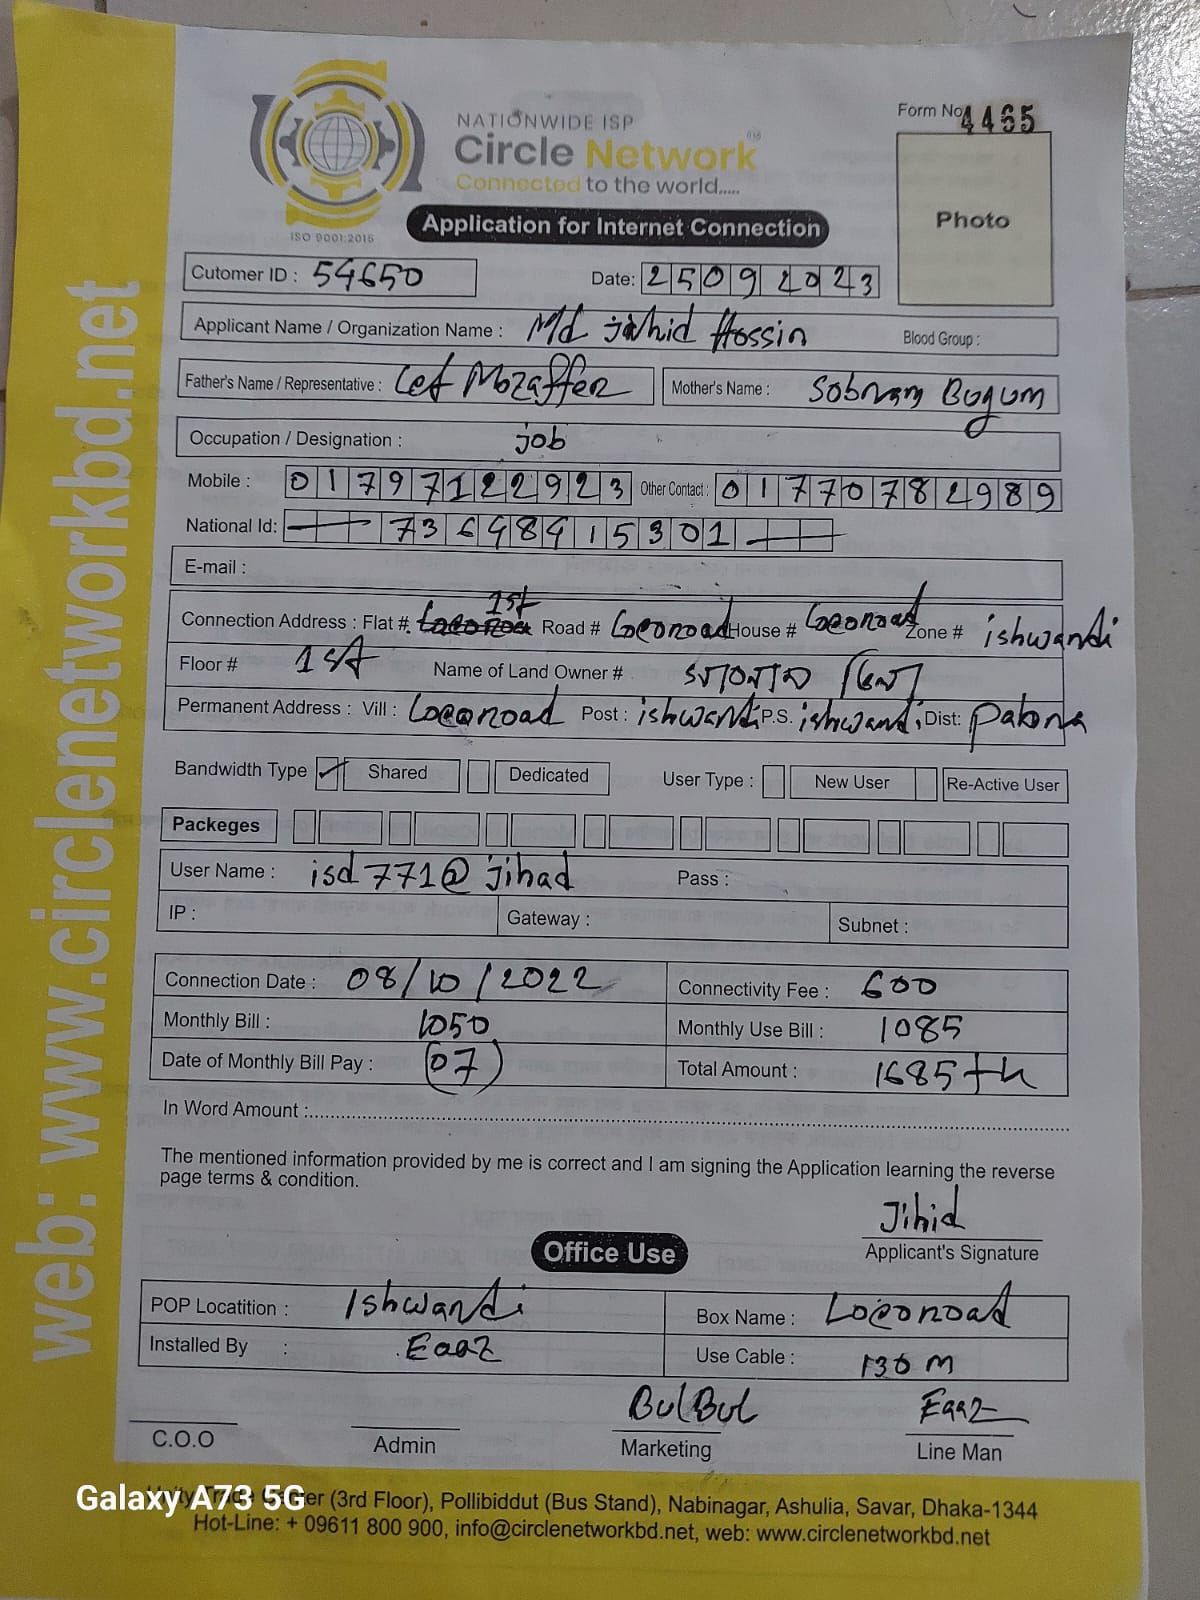 NATIONWIDE ISP
Circle Network
Connected to the world.....
ISO 9001:2015
Form No 4465
Photo
Application for Internet Connection
Cutomer ID : 54650 Date: 25092023
Applicant Name / Organization Name : Md jahid Hossin Blood Group :
Father's Name / Representative : Let Mozaffer Mother's Name : Sobnam Bugum
Occupation / Designation : job
Mobile : 01797122923 Other Contact : 01770782989
National Id: 73648415301
E-mail :
Connection Address : Flat # 1st Road # Locoroad House # Locoroad Zone # ishwardi
Floor # 1st Name of Land Owner #
Permanent Address : Vill : Locoroad Post : ishwardi P.S. ishwardi Dist: Pabna
Bandwidth Type ✓ Shared Dedicated User Type : New User Re-Active User
Packeges
User Name : isd771@jihad Pass :
IP : Gateway : Subnet :
Connection Date : 08/10/2022 Connectivity Fee : 600
Monthly Bill : 1050 Monthly Use Bill : 1085
Date of Monthly Bill Pay : 07 Total Amount : 1685 tk
In Word Amount :
The mentioned information provided by me is correct and I am signing the Application learning the reverse
page terms & condition.
Jihid
Applicant's Signature
Office Use
POP Locatition : Ishwardi Box Name : Locoroad
Installed By : Eaaz Use Cable : 130 M
BulBul Eaaz
C.O.O Admin Marketing Line Man
(3rd Floor), Pollibiddut (Bus Stand), Nabinagar, Ashulia, Savar, Dhaka-1344
Hot-Line: + 09611 800 900, info@circlenetworkbd.net, web: www.circlenetworkbd.net
web: www.circlenetworkbd.net
Galaxy A73 5G